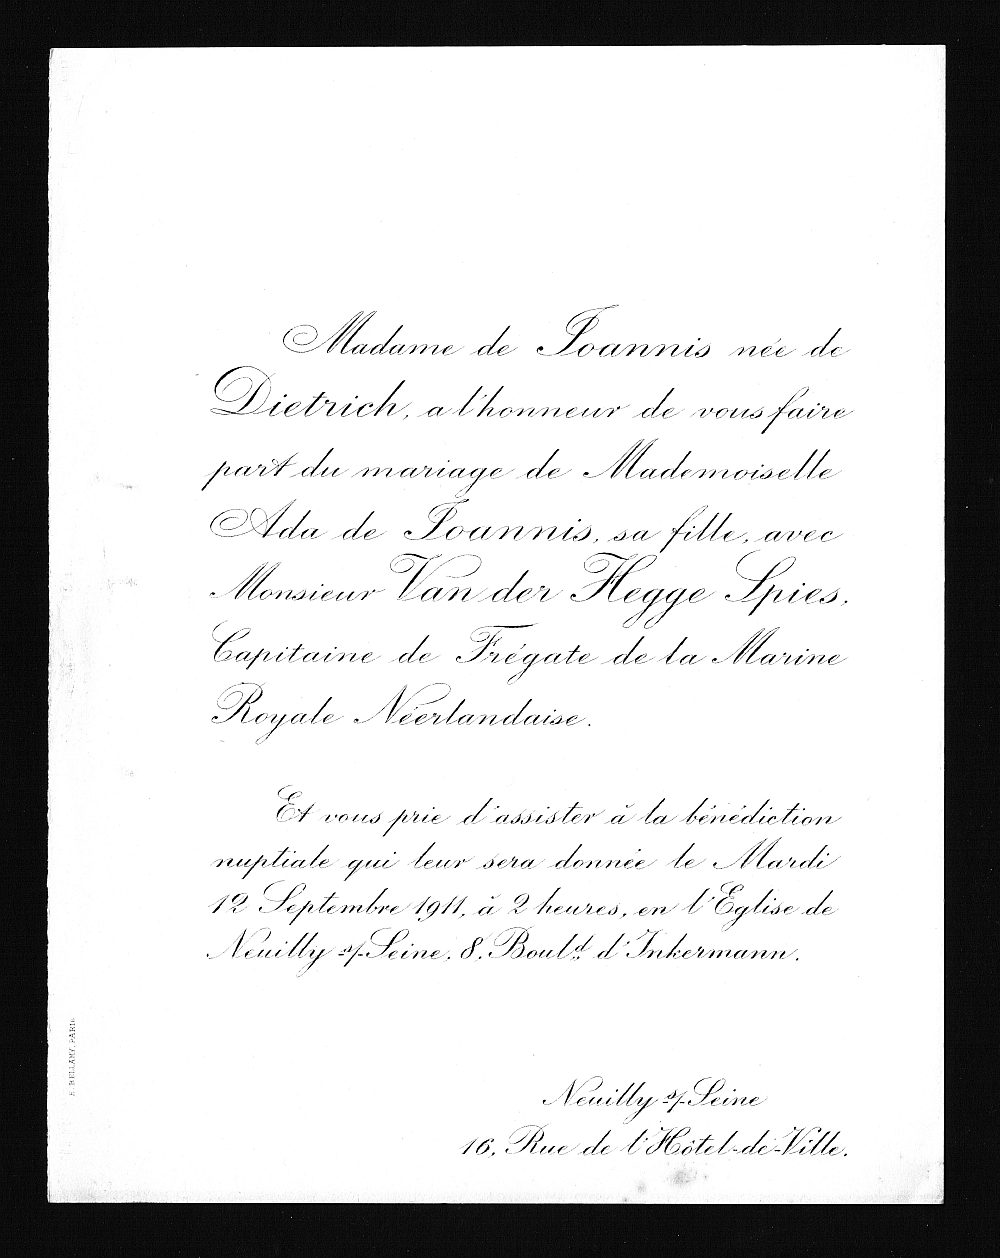 Madame de Joannis née de
Dietrich, a l'honneur de vous faire
part du mariage de Mademoiselle
Ada de Joannis, sa fille, avec
Monsieur Van der Hegge Spies,
Capitaine de Frégate de la Marine
Royale Néerlandaise.
Et vous prie d'assister à la bénédiction
nuptiale qui leur sera donnée le Mardi
12 Septembre 1911, à 2 heures, en l'Eglise de
Neuilly s/-Seine, 8, Bould d'Inkermann.
Neuilly s/-Seine
16, Rue de l'Hôtel-de-Ville.
BELLAMY, PARIS